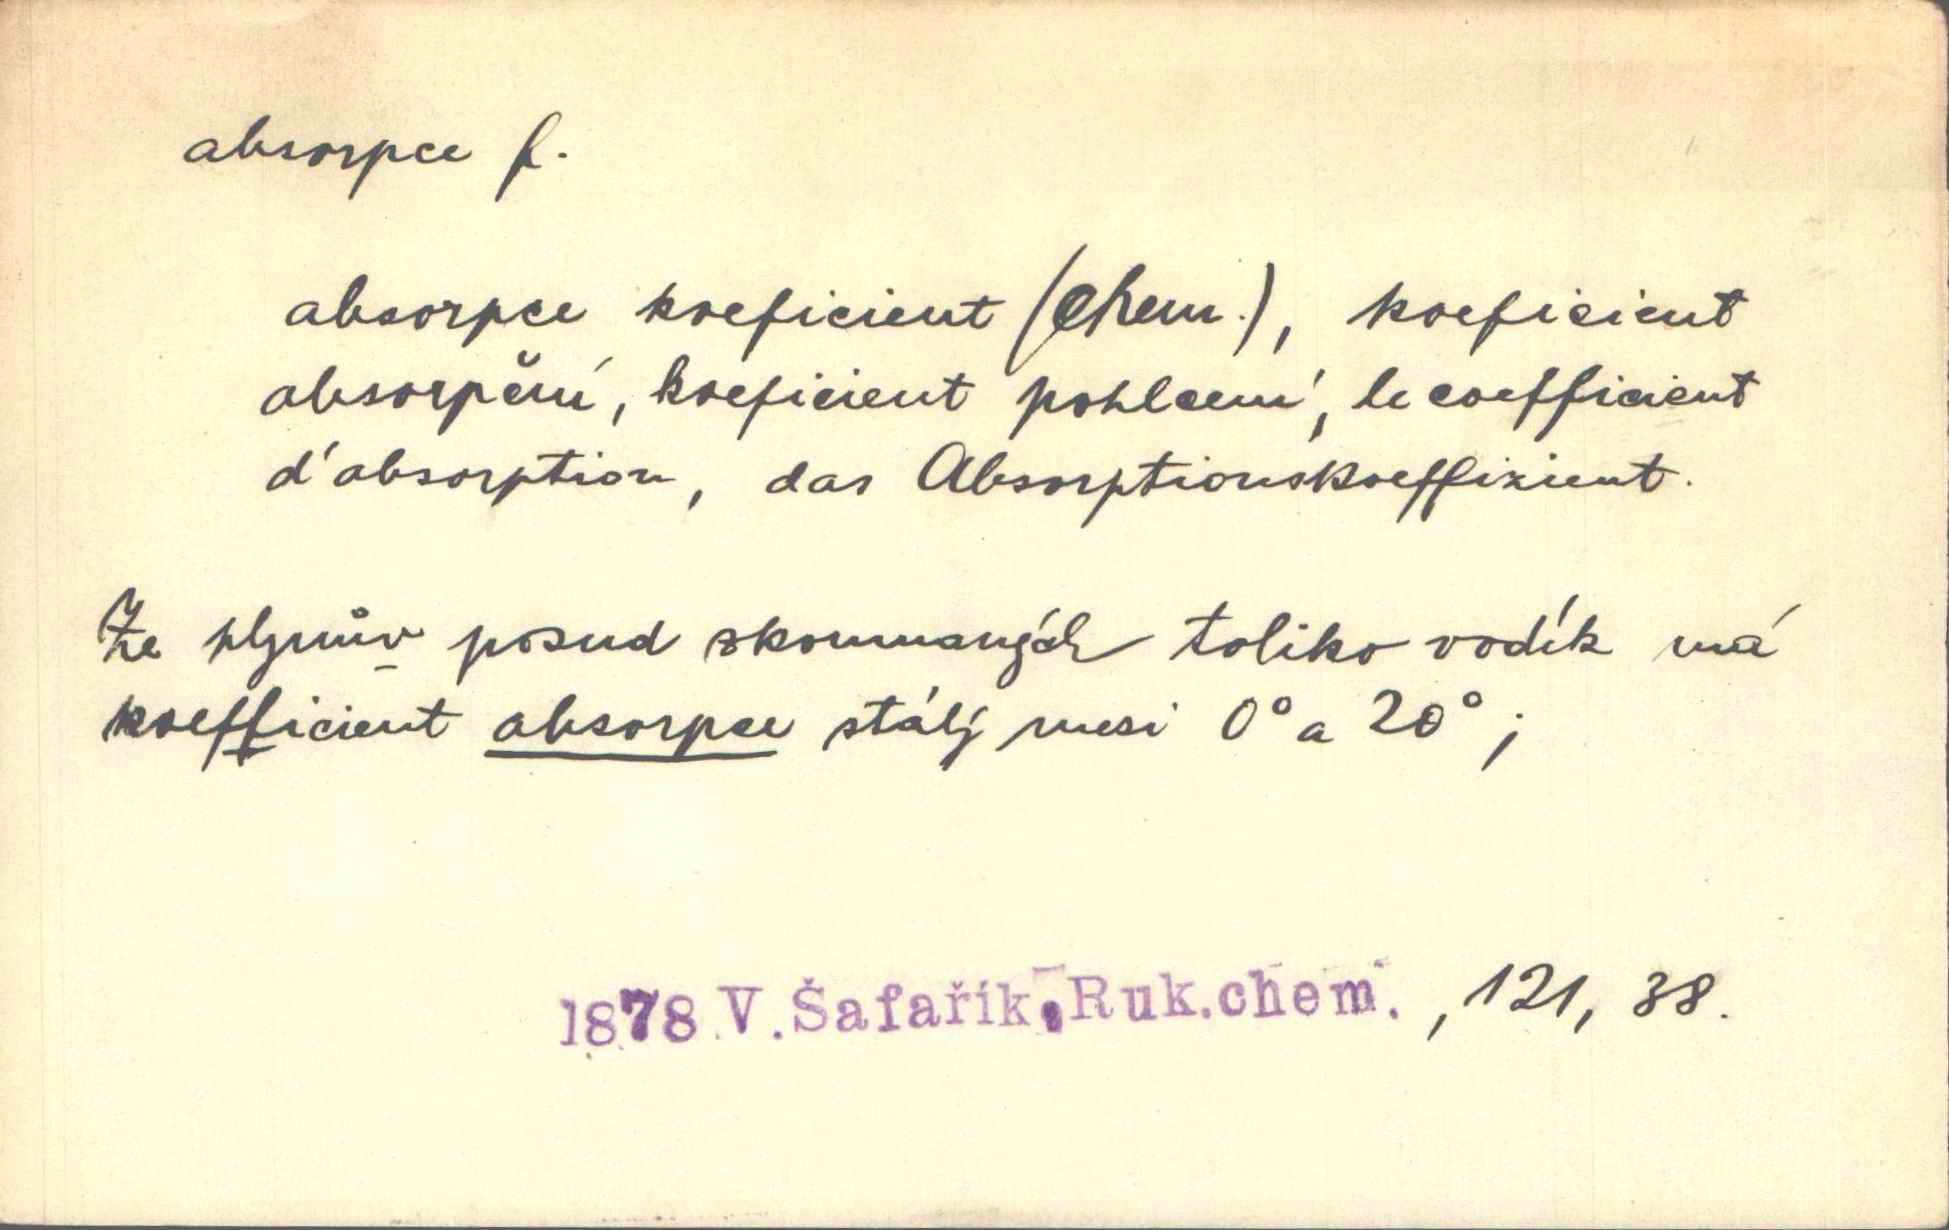 absorpce f.
absorpce koeficient (chem.), koeficient
absorpční, koeficient pohlcení, le coefficient
d'absorption, das Absorptionskoeffizient.
Ze plynův posud skoumaných toliko vodík má
koefficient absorpce stálý mezi 0° a 20° ;
1878 V. Šafařík, Ruk.chem. , 121, 38.